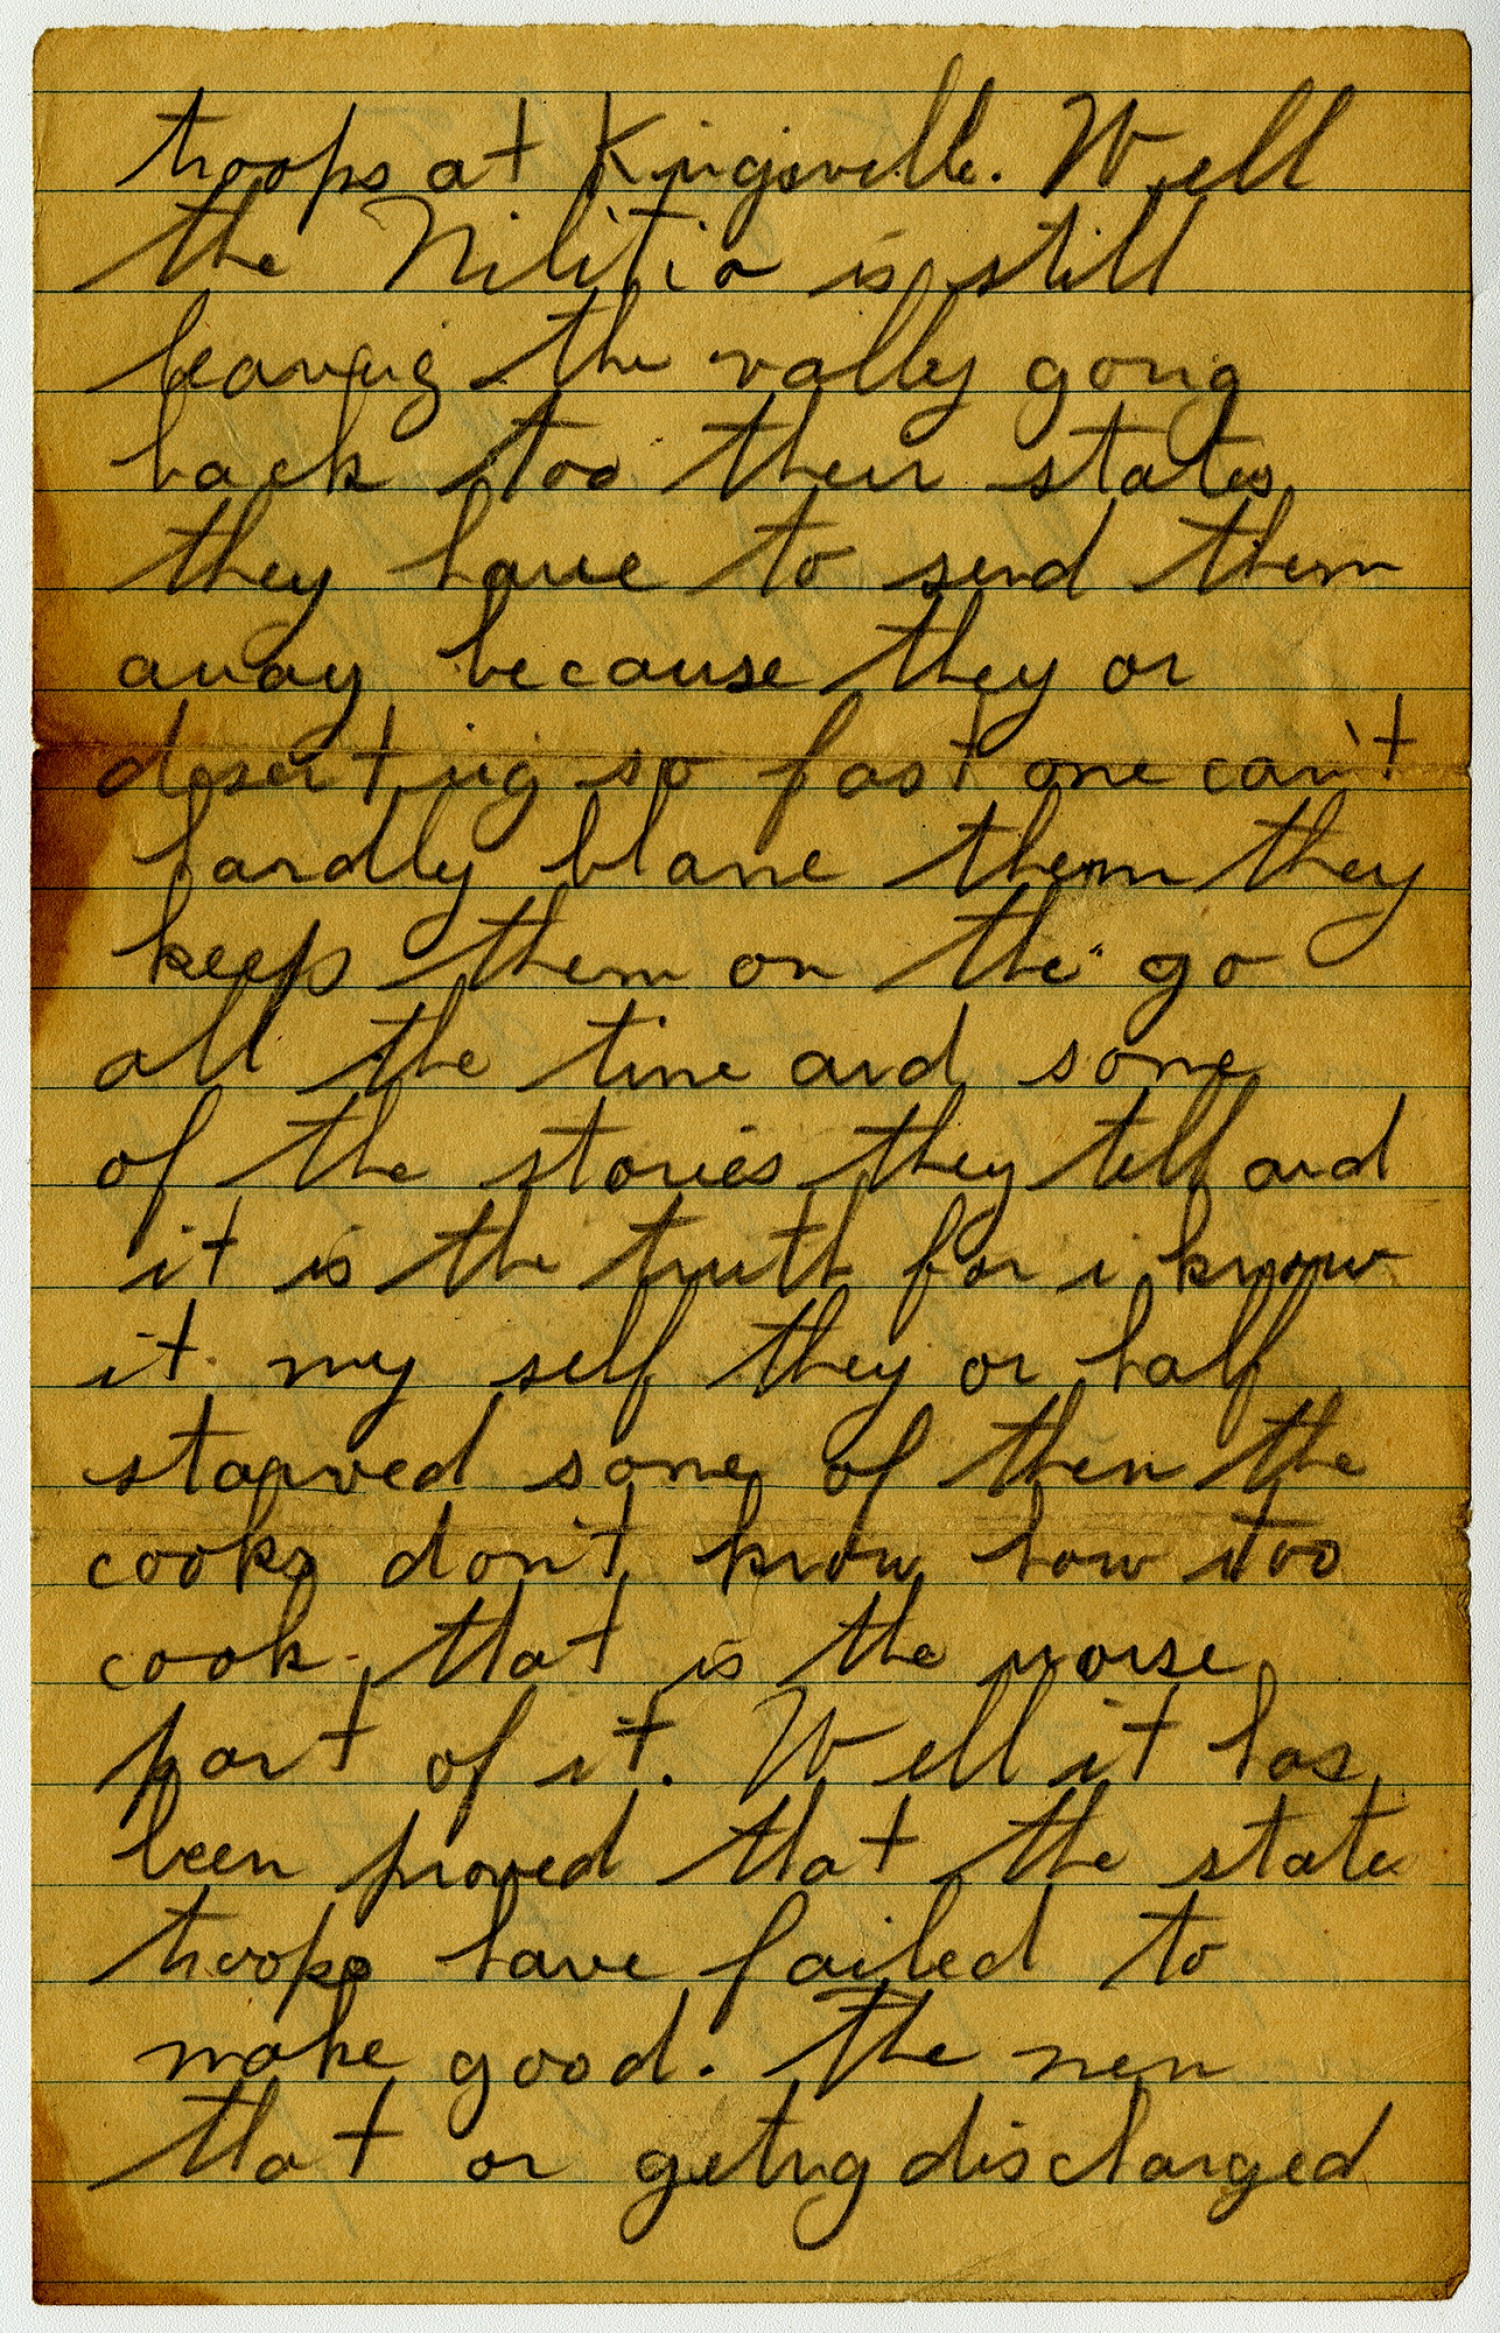 troops at Kingsville. Well
the Militia is still
leaving the valley going
back too their states
they have to send them
away because they or
deserting so fast one can't
hardly blame them they
keep them on the go
all the time and some
of the stories they tell and
it is the truth for i know
it my self they or half
starved some of them the
cooks don't know how too
cook. that is the worse
part of it. Well it has
been proved that the state
troops have failed to
make good. The men
that or geting discharged